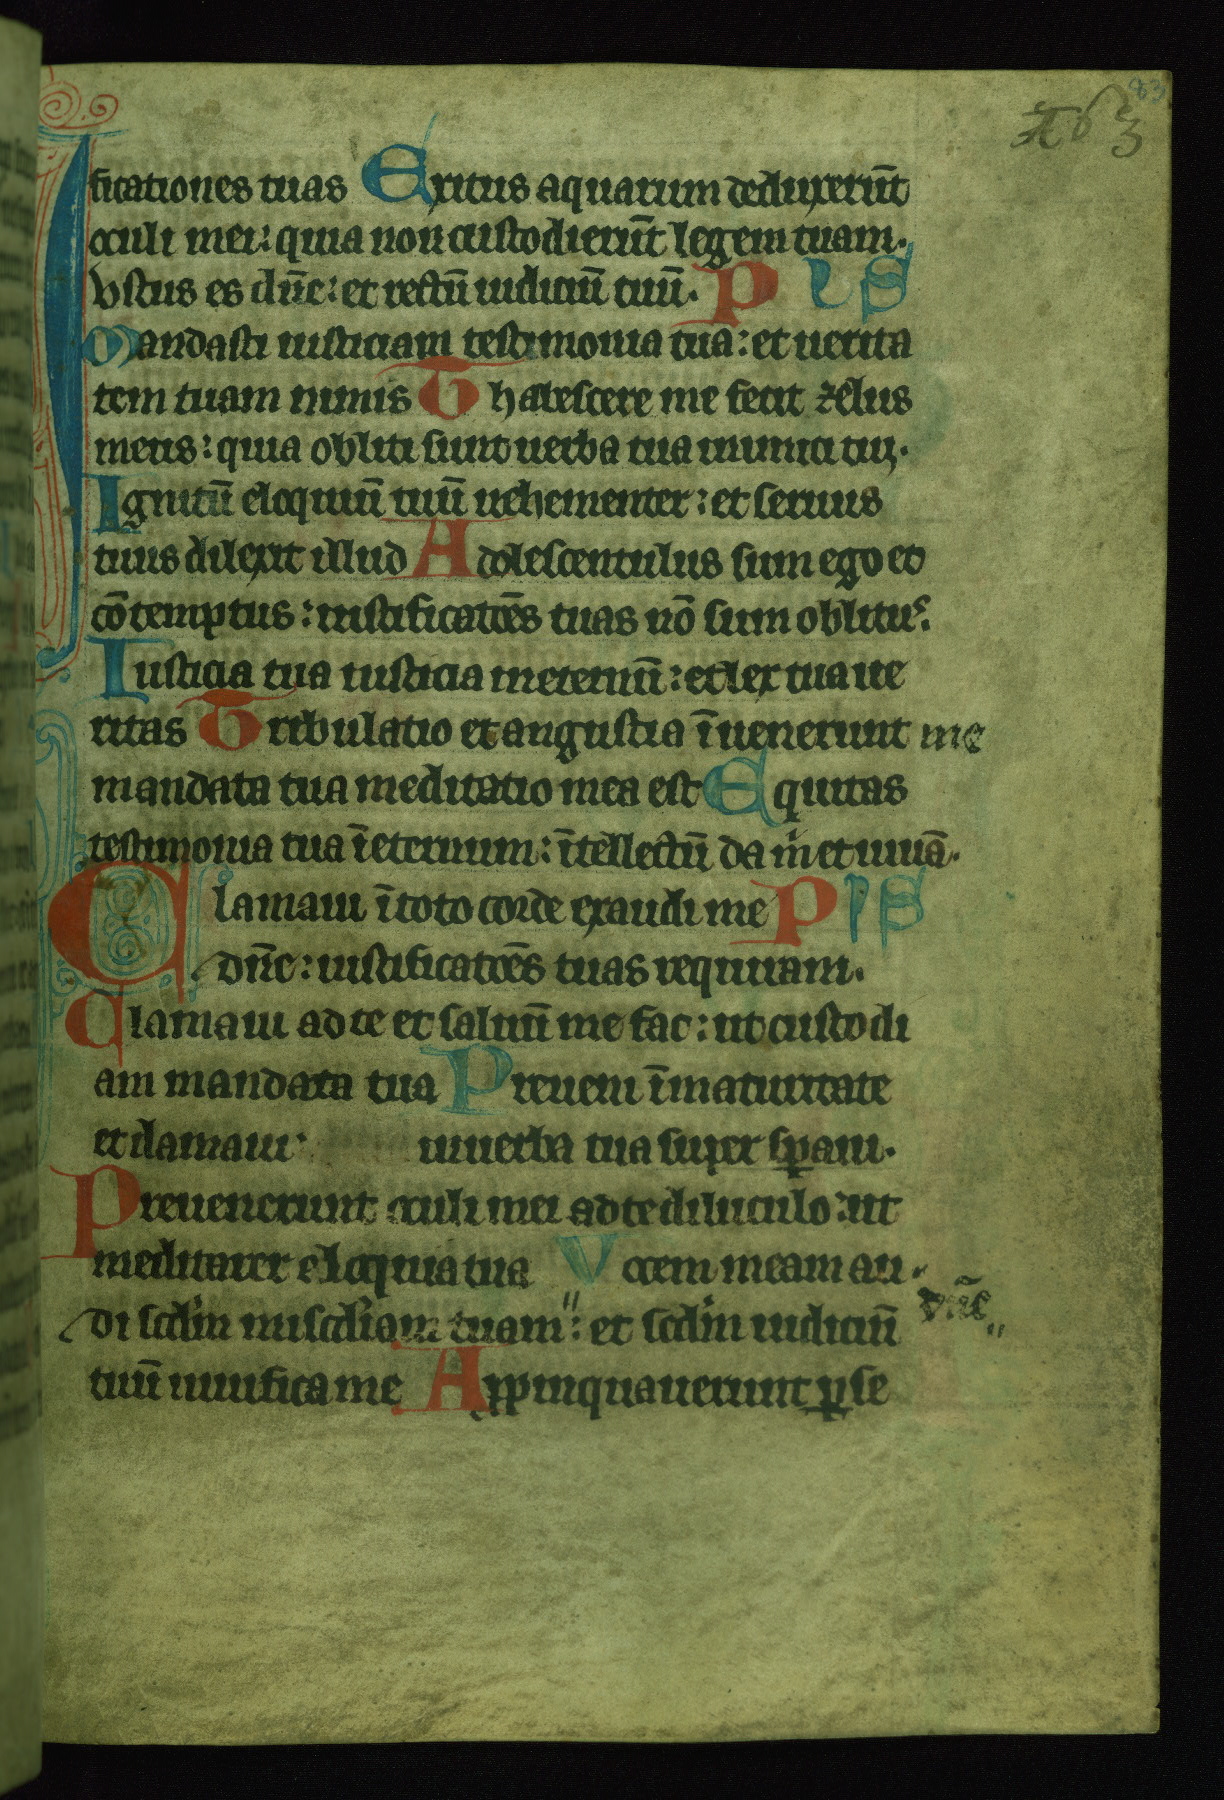 83
ficationes tuas Exitus aquarum deduxerūt
oculi mei: quia non custodierūt legem tuam.
Vstus es dn̄e: et rectū iudiciū tuū. P L S
Mandasti iusticiam testimonia tua: et uerita
tem tuam nimis T habescere me fecit zelus
meus: quia obliti sunt uerba tua inimici tui.
Ignitū eloquiū tuū uehementer: et seruus
tuus dilexit illud Adolescentulus sum ego et
cōtemptus: iustificatiōes tuas nō sum oblitus.
Iusticia tua iusticia ineternū: et lex tua ue
ritas Tribulatio et angustia īuenerunt me
mandata tua meditatio mea est Equitas
testimonia tua īeternum: ītellectū da m et uiuā.
Clamaui ī toto corde exaudi me P I S
dn̄e: iustificatiōes tuas requiram.
Clamaui ad te et saluū me fac: ut custodi
am mandata tua Preueni ī maturitate
et clamaui in uerba tua super spaui.
Preuenerunt oculi mei ad te diluculo: ut
meditarer eloquia tua Vocem meam au
di scdm miscdiam tuam": et scdm iudiciū dn̄e"
tuū uiuifica me Appinquauerunt pse